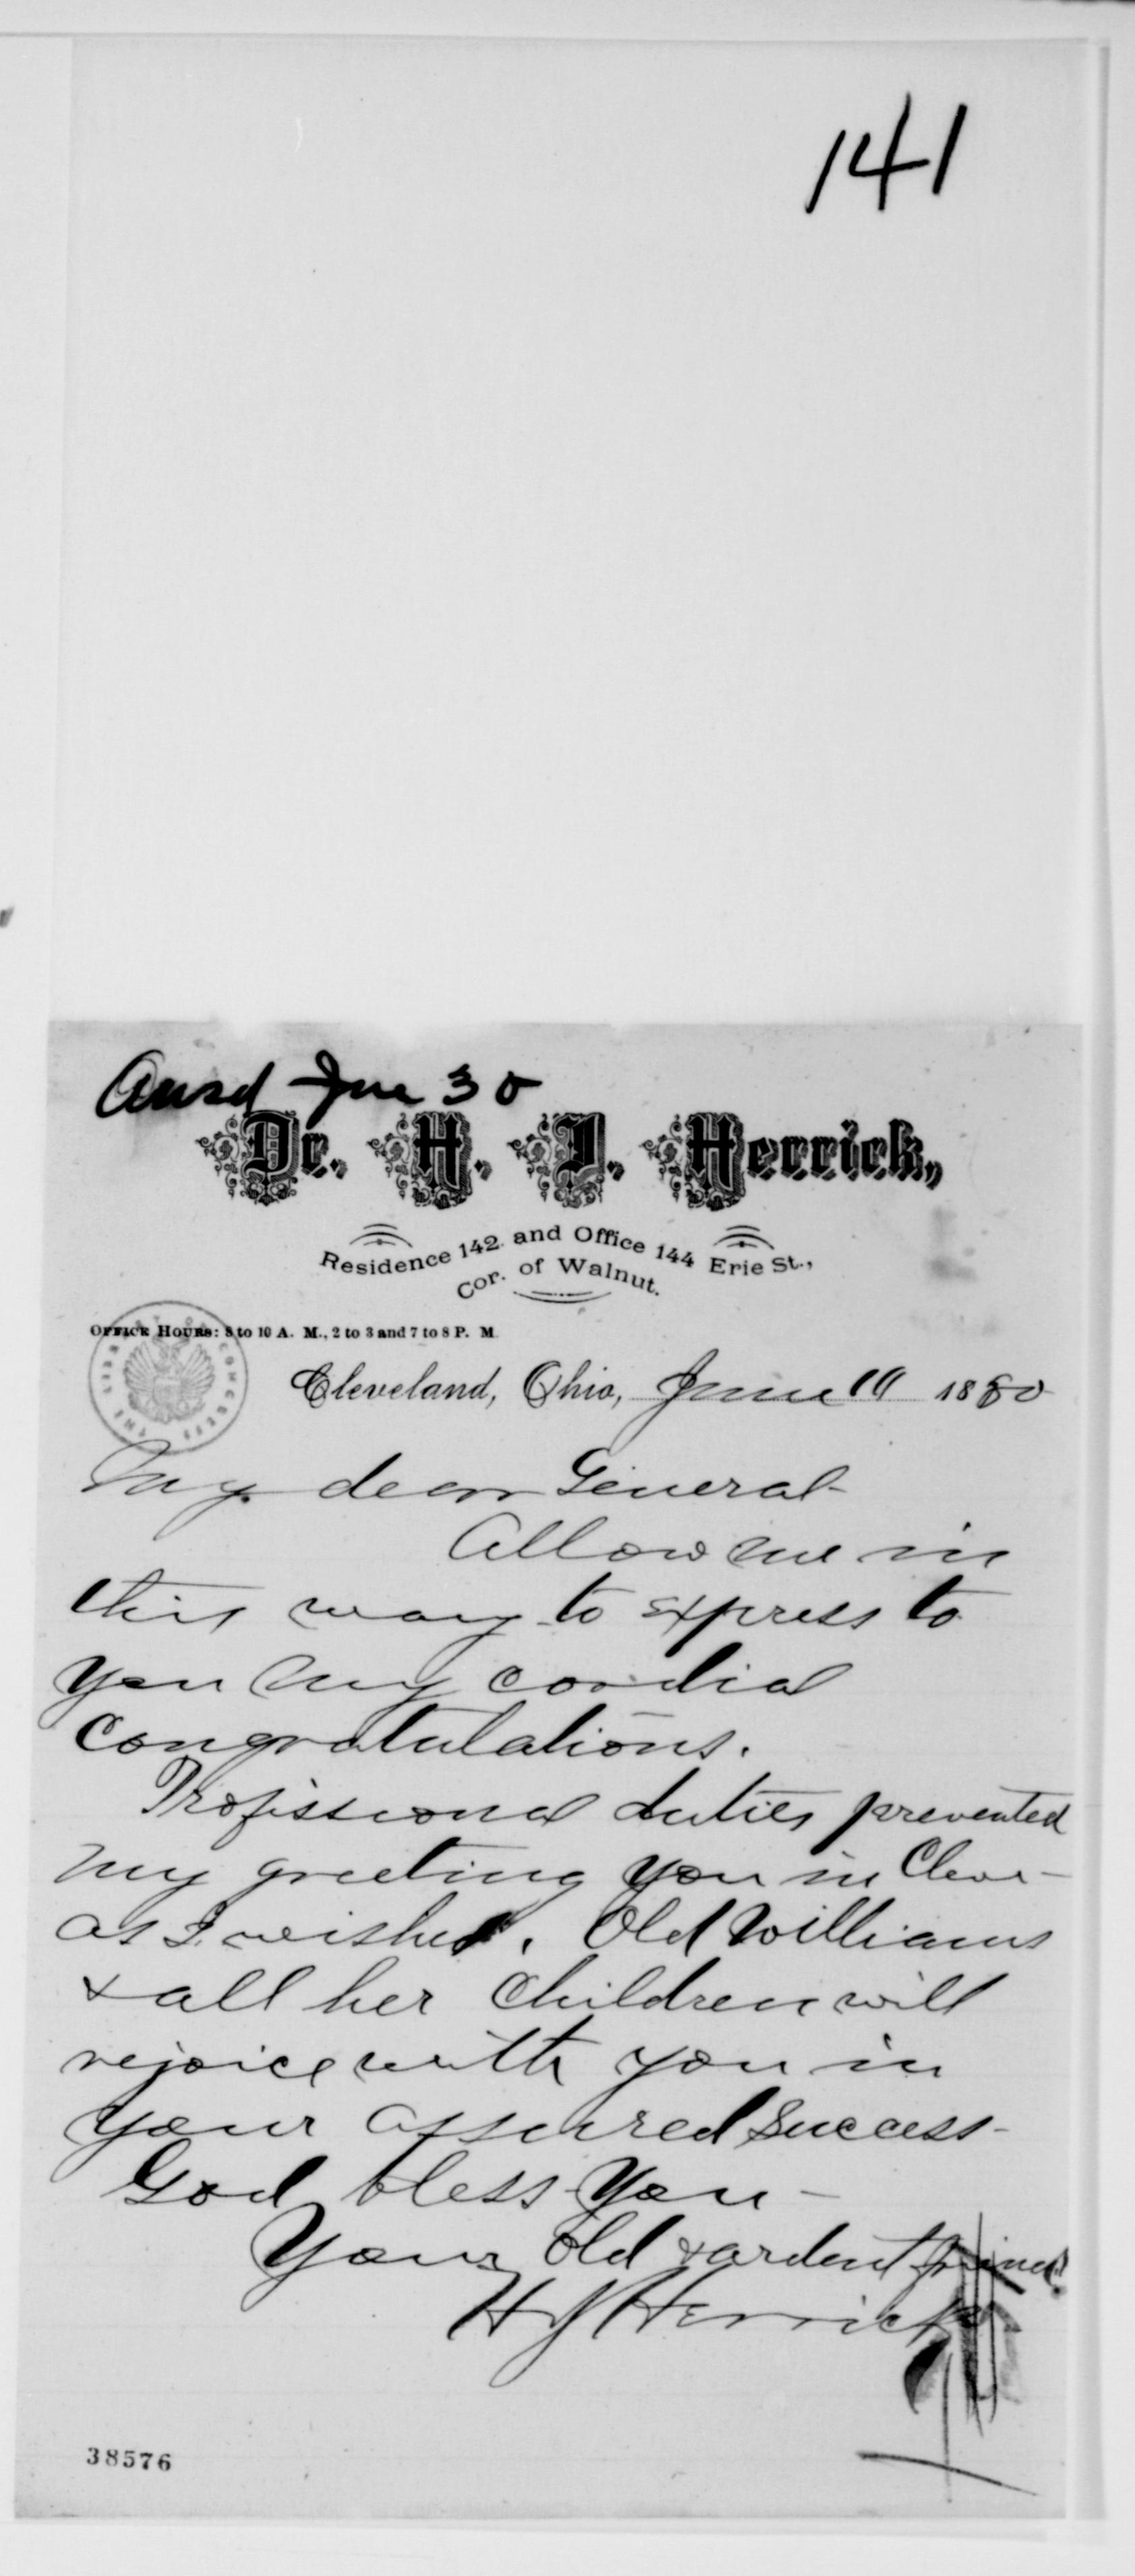 141
Ansd June 30
Dr. H. J. Herrick,
Residence 142 and Office 144 Erie St.,
Cor. of Walnut.
OFFICE HOURS: 8 to 10 A. M., 2 to 3 and 7 to 8 P. M.
Cleveland, Ohio, June 1880
My dear General
Allow me in
this way to express to
you my cordial
congratulations.
Professional duties prevented
my greeting you in Cleve-
as I wished. Old Williams
& all her children will
rejoice with you in
your assured success-
God bless you-
Your old & ardent friend
H J Herrick
38576